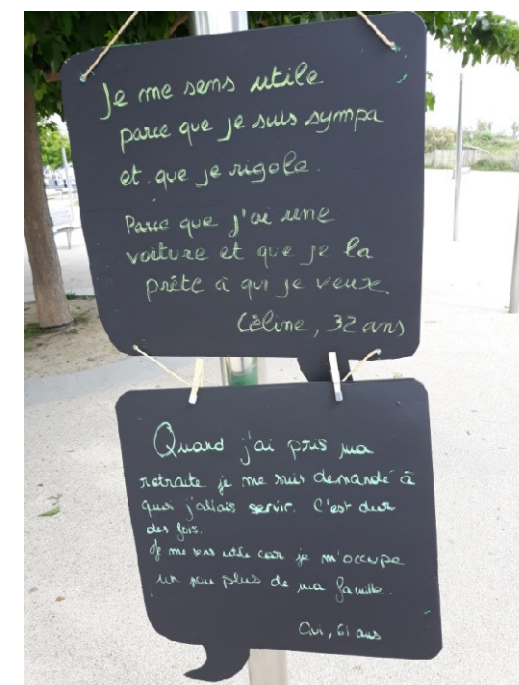 Je me sens utile
parce que je suis sympa
et que je rigole.
Parce que j'ai une
voiture et que je la
prête à qui je veux.
Céline, 32 ans
Quand j'ai pris ma
retraite je me suis demandé à
quoi j'allais servir. C'est dur
des fois.
Je me sens utile car je m'occupe
un peu plus de ma famille.
61 ans